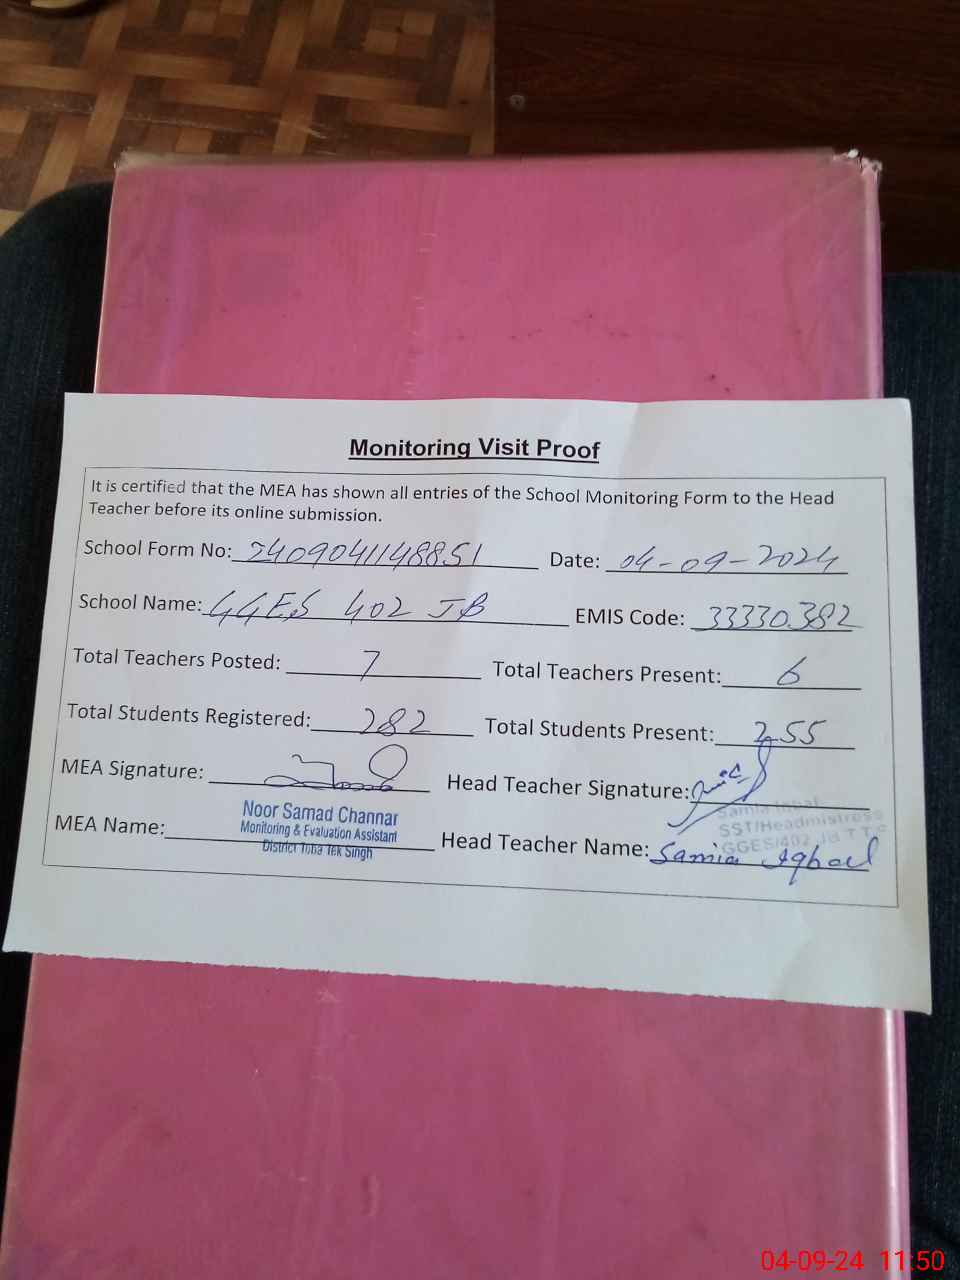 Monitoring Visit Proof
It is certified that the MEA has shown all entries of the School Monitoring Form to the Head
Teacher before its online submission.
School Form No: 2409041148851 Date: 04-09-2024
School Name: GGES 402 JB EMIS Code: 33330382
Total Teachers Posted: 7 Total Teachers Present: 6
Total Students Registered: 282 Total Students Present: 255
MEA Signature: Head Teacher Signature:
MEA Name: Noor Samad Channar
Monitoring & Evaluation Assistant
District Toba Tek Singh
Samia Iqbal
SST/Headmistress
GGES/402 JB T T S
Head Teacher Name: Samia Iqbal
04-09-24 11:50